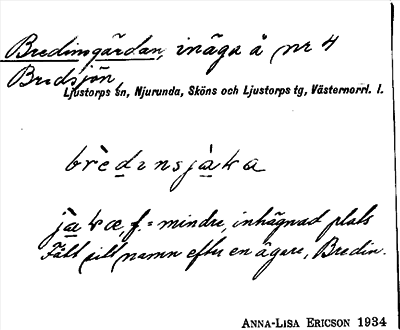 Bredinsgärdan, inäga å nr 4
Bredsjön,
Ljustorps sn, Njurunda, Sköns och Ljustorps tg, Västernorrl. l.
brèdɩnsjàka
jàkæ, f. = mindre, inhägnad plats
Fått sitt namn efter en ägare, Bredin.
ANNA-LISA ERICSON 1934